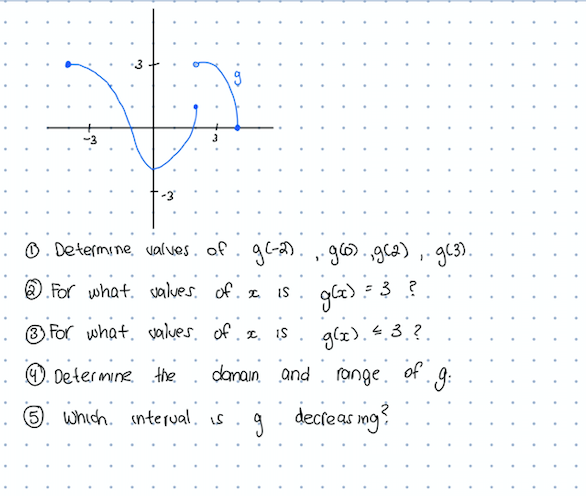 3
g
-3
3
-3
① Determine values of g(-2) , g(0) , g(2) , g(3)
② For what values of x is g(x) = 3 ?
③ For what values of x is g(x) ≤ 3 ?
④ Determine the domain and range of g.
⑤ Which interval is g decreasing?